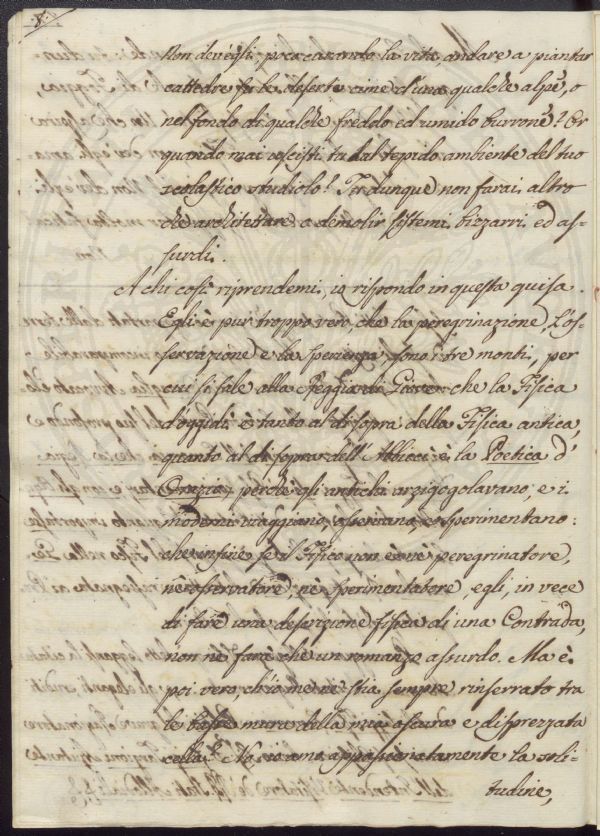 8.
Non dev'egli, poco curando la vita, andare a piantar
cattedre fu le deserte cime d'una qualche alpe, o
nel fondo di qualche freddo ed umido burrone? Or
quando mai uscisti tu dal tepido ambiente del tuo
scolastico studiolo? Tu dunque non farai altro
che architettare, o demolir sistemi bizzarri ed as-
surdi.
A chi così riprendemi, io rispondo in questa guisa.
Egli è pur troppo vero, che la peregrinazione, l'os-
servazione e la sperienza sono i tre monti, per
cui si sale alla Reggia di Giove: che la Fisica
d'oggidì è tanto al di sopra della Fisica antica,
quanto al di sopra dell'Abbiccì è la Poetica d'
Orazio; perchè gli antichi arzigogolavano, e i
moderni viaggiano, osservano, e sperimentano:
che infine se il Fisico non è nè peregrinatore,
nè osservatore, nè sperimentatore, egli, in vece
di fare una descrizione fisica di una Contrada,
non ne farà che un romanzo assurdo. Ma è
poi vero, ch'io me ne stia sempre rinserrato tra
le basse mura della mia oscura e disprezzata
cella? No: io amo appassionatamente la soli-
tudine,